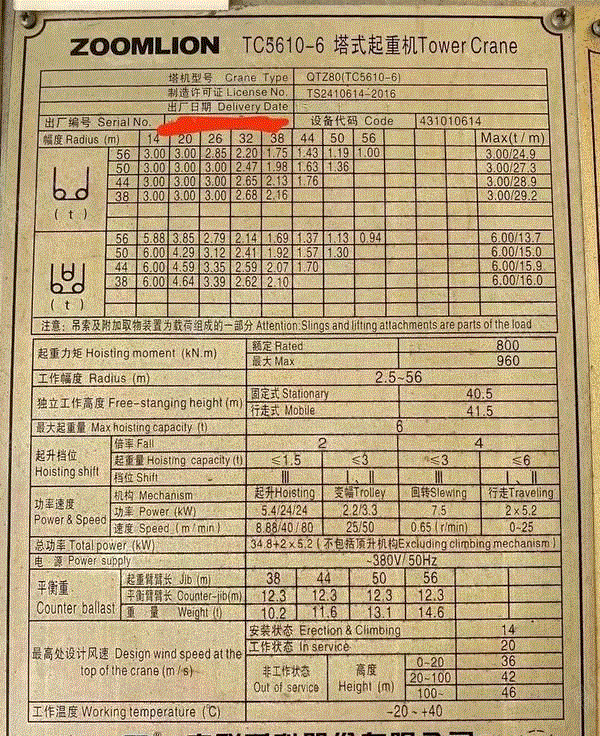 ZOOMLION TC5610-6 塔式起重机Tower Crane
塔机型号 Crane Type QTZ80(TC5610-6)
制造许可证 License No. TS2410614-2016
出厂日期 Delivery Date
出厂编号 Serial No. 设备代码 Code 431010614
幅度 Radius (m) 14 20 26 32 38 44 50 56 Max(t / m)
56 3.00 3.00 2.85 2.20 1.75 1.43 1.19 1.00 3.00/24.9
50 3.00 3.00 3.00 2.47 1.98 1.63 1.36 3.00/27.3
44 3.00 3.00 3.00 2.65 2.13 1.76 3.00/28.9
38 3.00 3.00 3.00 2.68 2.16 3.00/29.2
( t )
56 5.88 3.85 2.79 2.14 1.69 1.37 1.13 0.94 6.00/13.7
50 6.00 4.29 3.12 2.41 1.92 1.57 1.30 6.00/15.0
44 6.00 4.59 3.35 2.59 2.07 1.70 6.00/15.9
38 6.00 4.64 3.39 2.62 2.10 6.00/16.0
( t )
注意: 吊索及附加取物装置为载荷组成的一部分 Attention:Slings and lifting attachments are parts of the load
起重力矩 Hoisting moment (kN.m) 额定 Rated 800
最大 Max 960
工作幅度 Radius (m) 2.5~56
独立工作高度 Free-stanging height(m) 固定式 Stationary 40.5
行走式 Mobile 41.5
最大起重量 Max hoisting capacity (t) 6
起升档位 Hoisting shift 倍率 Fall 2 4
起重量 Hoisting capacity(t) ≤1.5 ≤3 ≤3 ≤6
档位 Shift Ⅲ Ⅰ、Ⅱ Ⅲ Ⅰ、Ⅱ
功率速度 Power & Speed 机构 Mechanism 起升Hoisting 变幅Trolley 回转Slewing 行走Traveling
功率 Power (kW) 5.4/24/24 2.2/3.3 7.5 2×5.2
速度 Speed (m/min) 8.88/40/80 25/50 0.65 (r/min) 0-25
总功率 Total power (kW) 34.8+2×5.2 (不包括顶升机构Excluding climbing mechanism)
电 源 Power supply ~380V/ 50Hz
平衡重 Counter ballast 起重臂臂长 Jib (m) 38 44 50 56
平衡臂臂长 Counter-jib(m) 12.3 12.3 12.3 12.3
重 量 Weight (t) 10.2 11.6 13.1 14.6
最高处设计风速 Design wind speed at the top of the crane (m/s) 安装状态 Erection & Climbing 14
工作状态 In service 20
非工作状态 Out of service 高度 Height (m) 0~20 36
20~100 42
100~ 46
工作温度 Working temperature (℃) -20 ~ +40